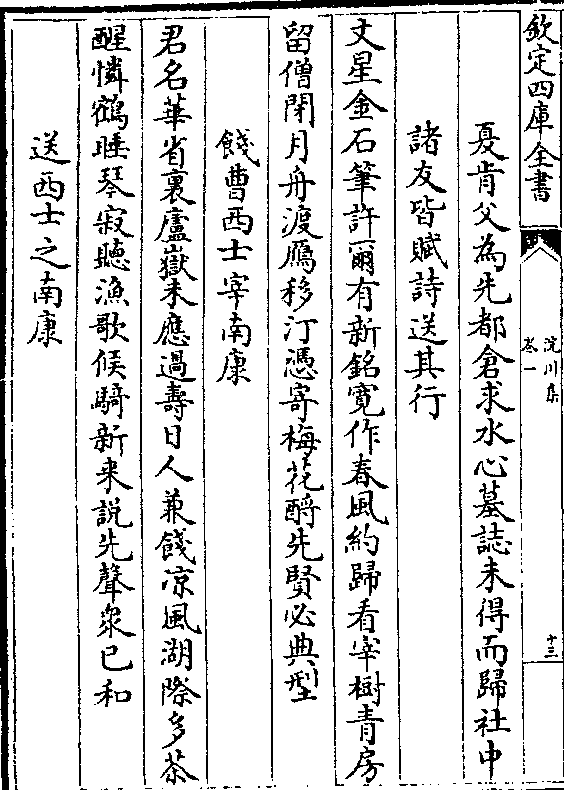 欽定四庫全書
浣川集
卷一
十三
夏肯父為先都倉求水心墓誌未得而歸社中
諸友皆賦詩送其行
文星金石筆許爾有新銘寛作春風約歸看宰樹青房
留僧閉月舟渡鴈移汀憑寄梅花酹先賢必典型
餞曹西士宰南康
君名華省裏廬嶽未應過壽日人兼餞凉風湖際多茶
醒憐鶴睡琴寂聽漁歌候騎新来説先聲衆已和
送西士之南康